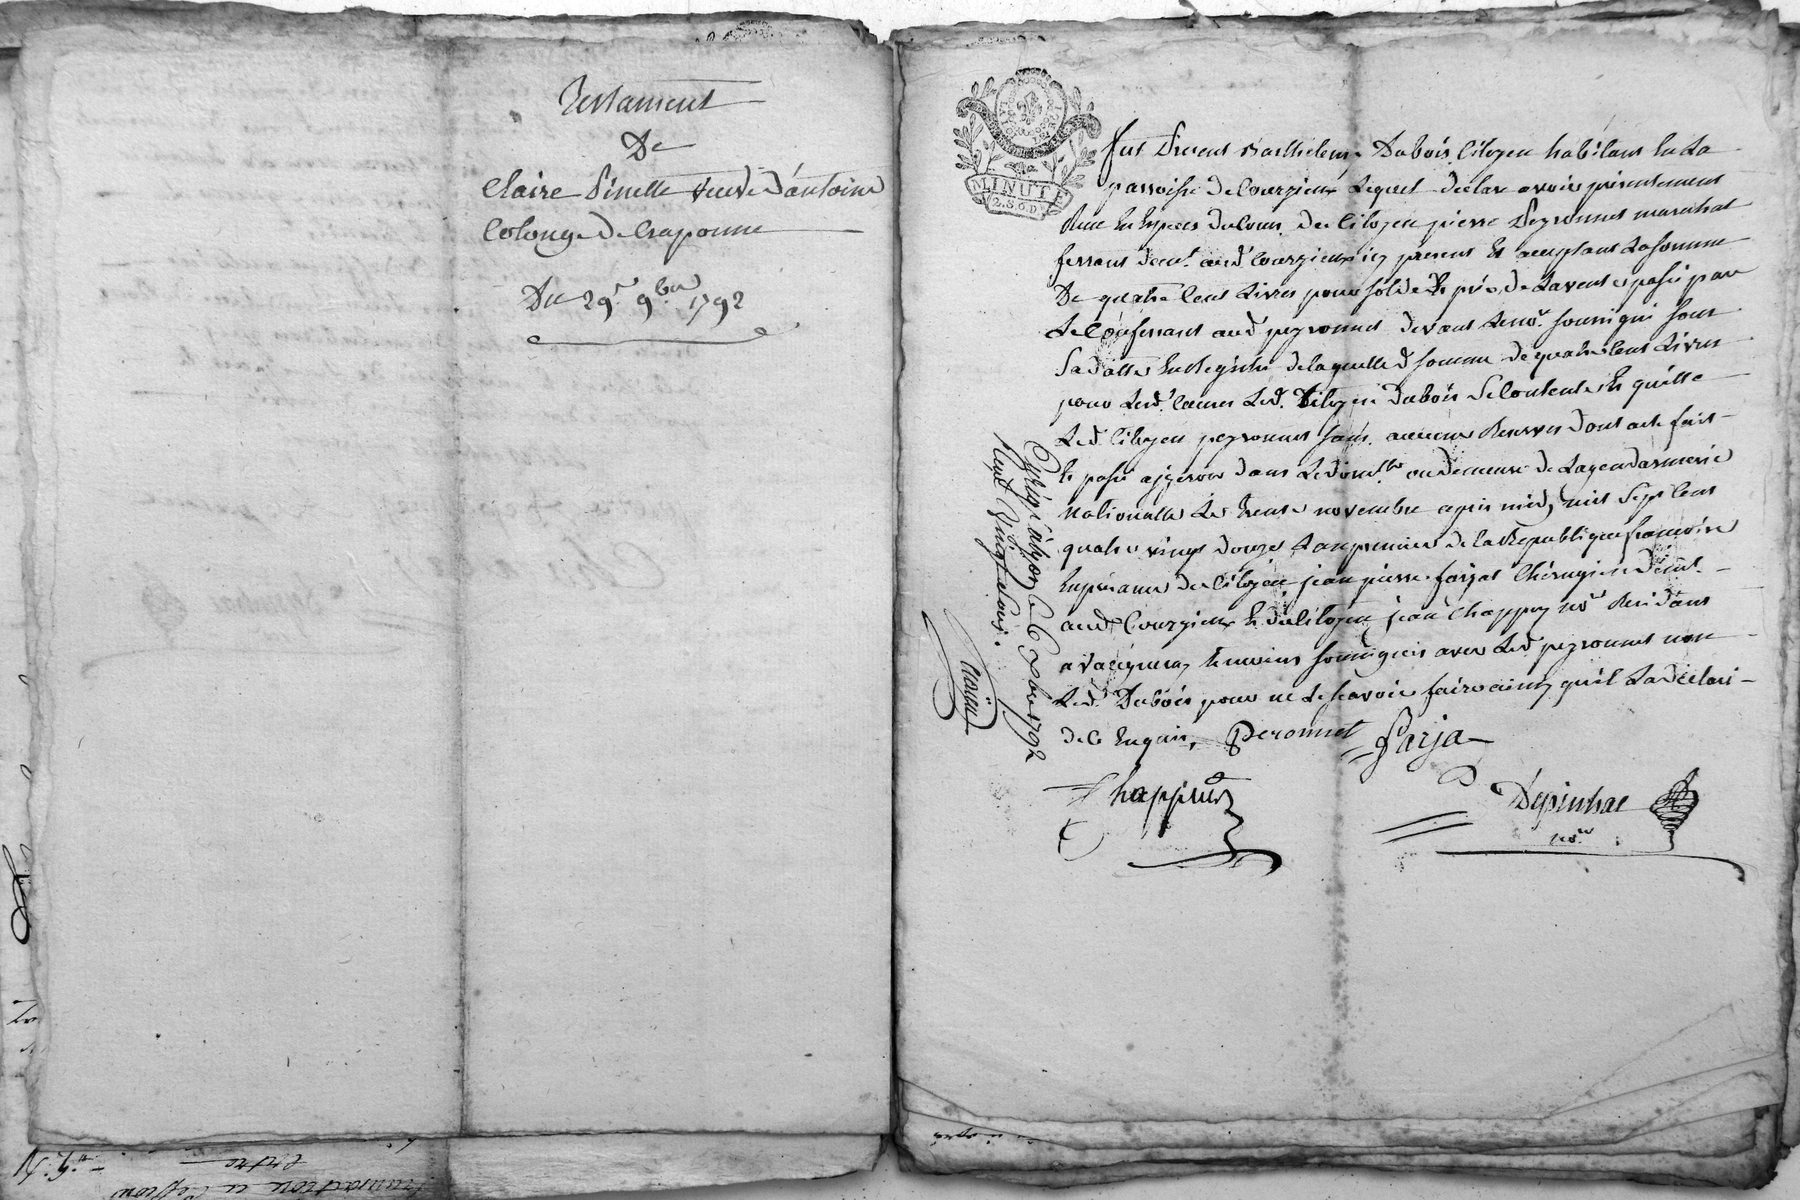 Testament
De
Claire Pinelle veuve d'antoine
Colonge De Craponne
Du 29.e 9.bre 1792
MINUTE
2.S.6.D
fut Present Barthelemy Dubois Citoyen habitant En La
parroisse de Courzieux Lequel declare avoir presentement
Recu En Especes de Cours du Citoyen pierre Peyronnet marechal
ferrant demt. aud Courzieux icy present Et acceptant La somme
De quatre Cent Livres pour solde du prix de La vente passée par
Le Confessant aud peyronnet devant Le nore. soussigné sous
Sa datte Enregistré de laquelle d. somme de quatre Cent Livres
pour Lesd. Causes Led. Citoyen Dubois se Contente Et quitte
Led. Citoyen peyronnet sans aucune Reserve Dont acte fait
Et passé a yzeron dans Le domlle ou demeure de La gendarmerie
Nationalle Le trente novembre apres midy mil sept Cent
quatre vingt douze L'an premier de la Republique francoise
En presence du Citoyen jean pierre farjat Chirurgien demt.
aud Courzieux Et du Citoyen jean Chappuy nore Residant
a Vaugneray temoins soussignés avec Led peyronnet non
Led. Dubois pour ne Le scavoir faire ainsy qu'il La déclaré
de ce Enquis,
Peronnet
farja
Chappuis
Depinhac
nore.
Enregé a lyon Le 6 Xbre 1792
Recu vingt sous.